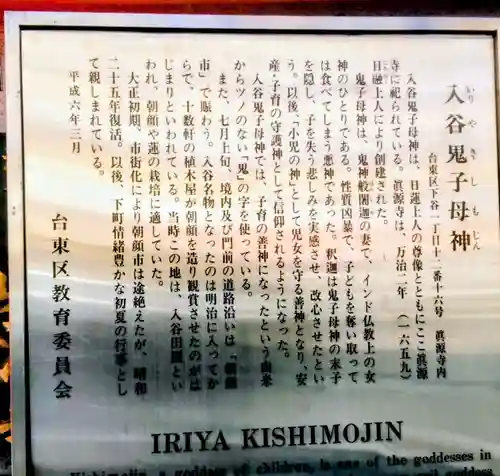 入谷鬼子母神
いりやきしもじん
台東区下谷一丁目十二番十六号　眞源寺内
入谷鬼子母神は、日蓮上人の尊像とともにここ眞源
寺に祀られている。眞源寺は、万治二年（一六五九）
日融上人により創建された。
鬼子母神は、鬼神般闍迦の妻で、インド仏教上の女
神のひとりである。性質凶暴で、子どもを奪い取って
は食べてしまう悪神であった。釈迦は鬼子母神の末子
を隠し、子を失う悲しみを実感させ、改心させたとい
う。以後「小児の神」として児女を守る善神となり、安
産・子育の守護神として信仰されるようになった。
入谷鬼子母神では、子育の善神になったという由来
からツノのない「鬼」の字を使っている。
また、七月上旬、境内及び門前の道路沿いは「朝顔
市」で賑わう。入谷名物となったのは明治に入ってか
らで、十数軒の植木屋が朝顔を造り観賞させたのがは
じまりといわれている。当時この地は、入谷田圃とい
われ、朝顔や蓮の栽培に適していた。
大正初期、市街化により朝顔市は途絶えたが、昭和
二十五年復活。以後、下町情緒豊かな初夏の行事とし
て親しまれている。
平成六年三月
台東区教育委員会
IRIYA KISHIMOJIN
Kishimojin, a goddess of children, is one of the goddesses in